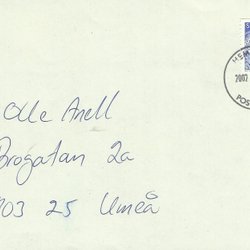 Olle Anell
Brogatan 2a
903 25 Umeå
2002
POS